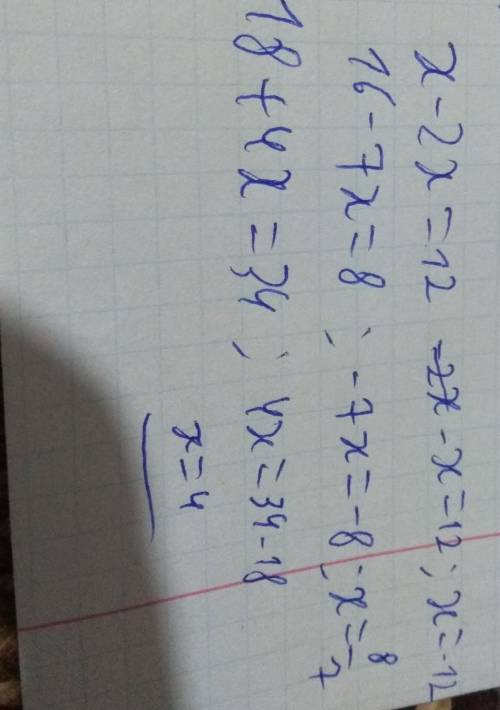 x - 2x = 12 -2x - x = 12; x = -12
16 - 7x = 8 ; -7x = -8; x = 8/7
18 + 4x = 34 ; 4x = 34 - 18
x = 4